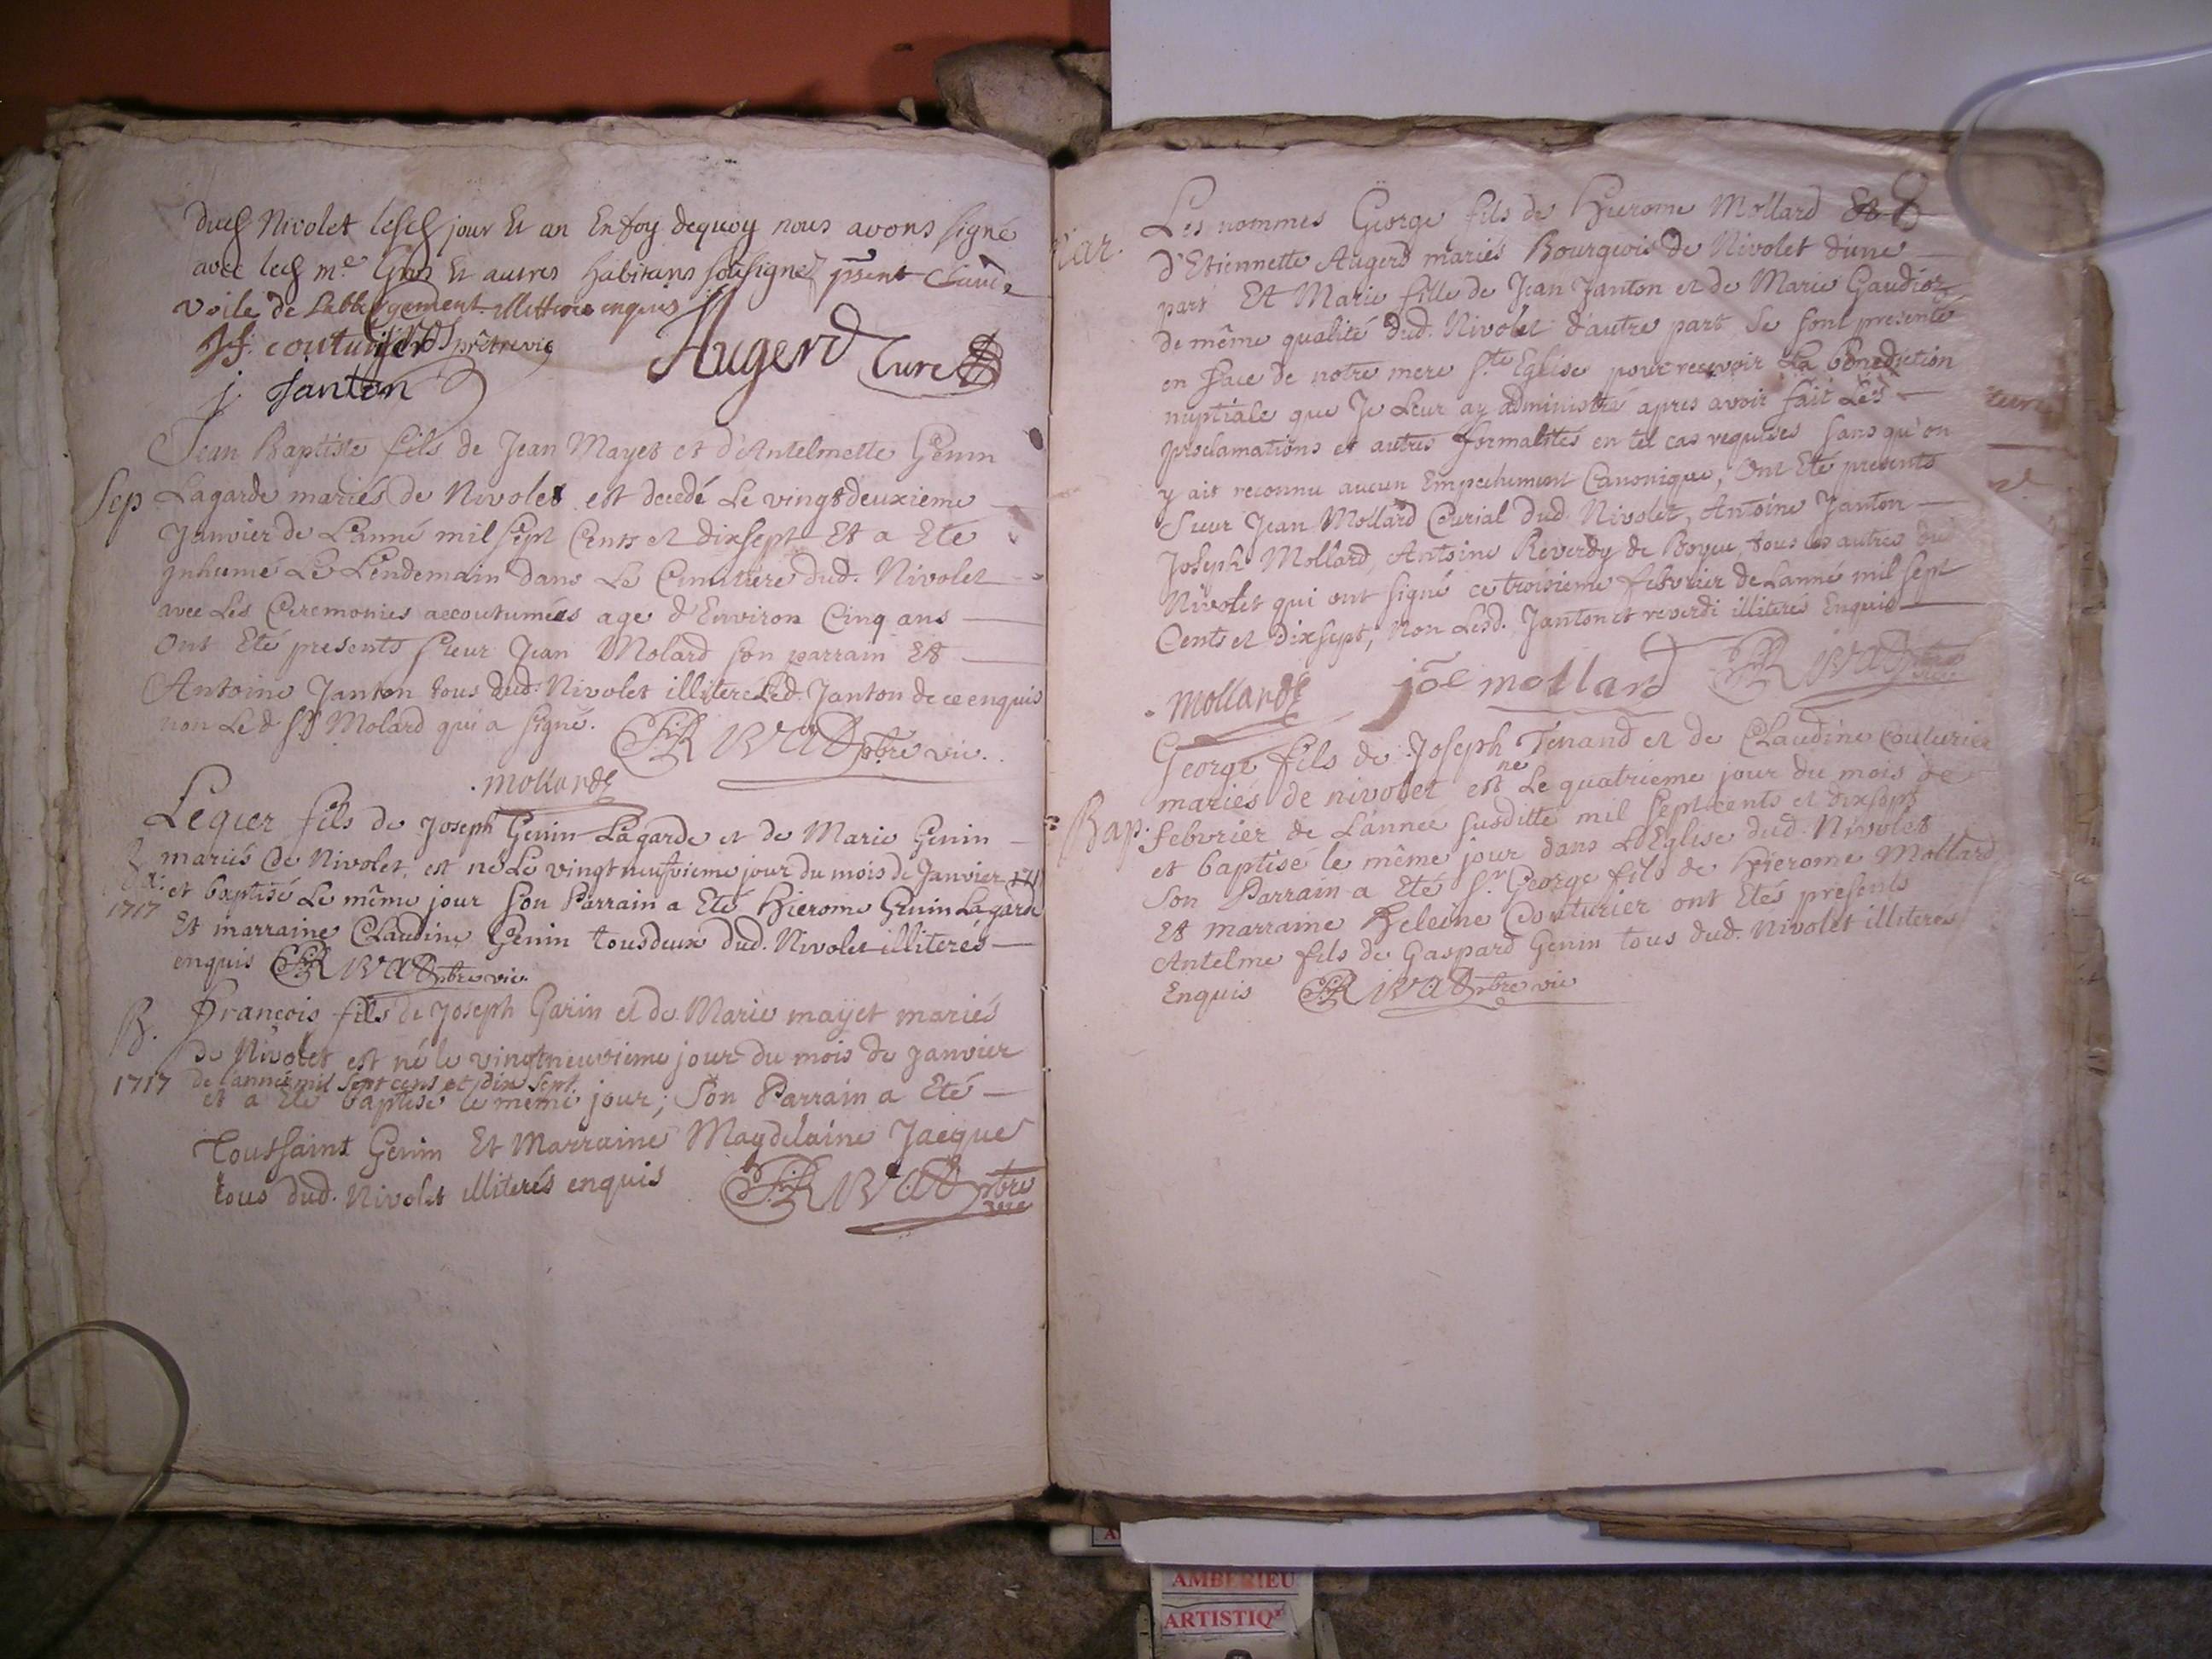 dud Nivolet lesd jour Et an En foy dequoy nous avons signé
avec led m.e Gros Et autres habitans sousignez pñt Claude
voile de Labbergement illettere enquis
couturier Gros prêtre vic
Augerd Curé
j. Janton
Jean Baptiste fils de Jean Mayet et d'Antelmette Genin
Sep
Lagarde mariés de Nivolet est decedé Le vingtdeuxieme
Janvier de L'anné mil sept Cents et dixsept Et a Eté
Jnhumé Le Lendemain dans Le Cimitiere dud. Nivolet
avec Les Ceremonies accoutumées age d'Environ Cinq ans
Ont Eté presents Sieur Jean Molard son parrain Et
Antoine Janton tous dud. Nivolet illitere Led. Janton de ce enquis
non Led Sr Molard qui a signé.
pbre vic.
Mollard
Legier fils de Joseph Genin Lagarde et de Marie Genin
mariés de Nivolet, est né Le vingt neufvieme jour du mois de Janvier 1717
et baptisé Le même jour son Parrain a Eté Hierome Genin Lagarde
1717
Et marraine Claudine Genin tous deux dud. Nivolet illiterés
enquis pbre vic.
B. François fils de Joseph Garin et de Marie mayet mariés
de Nivolet est né le vingtneuvieme jour du mois de janvier
1717 de l'année mil sept cens et dix sept
et a Eté baptisé le même jour; Son Parrain a Eté
Toussaint Genin Et Marraine Magdelaine Jacque
tous dud. Nivolet illiterés enquis
pbre vic
Les nommes George fils de Hierome Mollard Et 8
Mar.
d'Etiennette Augerd mariés Bourgeois de Nivolet d'une
part Et Marie fille de Jean Janton et de Marie Gaudioz
de même qualité dud. Nivolet d'autre part Se sont presente
en face de notre mere S.te Eglise pour recevoir La benediction
nuptiale que Je Leur ay administré apres avoir fait Les
proclamations et autres formalités en tel cas requises sans qu'on
y ait reconnu aucun Empechement Canonique, Ont Eté presents
Sieur Jean Mollard Curial dud. Nivolet, Antoine Janton
Joseph Mollard, Antoine Reverdy de Boyeu, tous les autres du
Nivolet qui ont signé ce troisieme febvrier de L'anné mil sept
Cents et Dixsept, Non Lesd. Janton et reverdi illiterés Enquis
Mollard joe mollard
George fils de Joseph Tenand et de Claudine Couturier
mariés de nivolet est né Le quatrieme jour du mois de
Bap.
febvrier de L'année susditte mil sept cents et dixsept
et baptisé le même jour dans L'Eglise dud. Nivolet
Son Parrain a Eté S.r George fils de Hierome Mollard
Et marraine Heleine Couturier ont Etés presents
Antelme fils de Gaspard Genin tous dud. Nivolet illiterés
Enquis pbre vic
AMBERIEU
ARTISTIQ